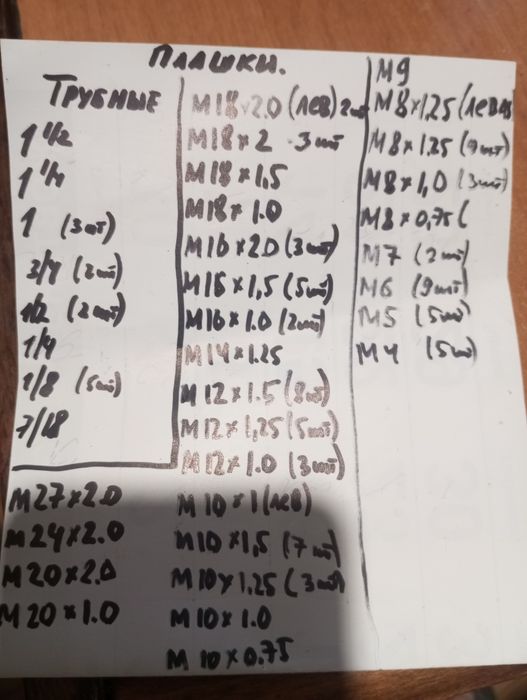 ПЛАШКИ.
ТРУБНЫЕ
1 1/2
1 1/4
1 (3шт)
3/4 (2шт)
1/2 (2шт)
1/4
1/8 (5шт)
7/18
М27×2.0
М24×2.0
М20×2.0
М20×1.0
М18×2.0 (ЛЕВ) 2шт
М18×2 3шт
М18×1,5
М18×1.0
М16×2.0 (3шт)
М16×1,5 (5шт)
М16×1.0 (2шт)
М14×1.25
М12×1.5 (8шт)
М12×1,25 (5шт)
М12×1.0 (3шт)
М10×1 (ЛЕВ)
М10×1,5 (7шт)
М10×1.25 (3шт)
М10×1.0
М10×0.75
М9
М8×1.25 (ЛЕВАЯ
М8×1.25 (9шт)
М8×1,0 (3шт)
М8×0,75 (
М7 (2шт)
М6 (9шт)
М5 (5шт)
М4 (5шт)